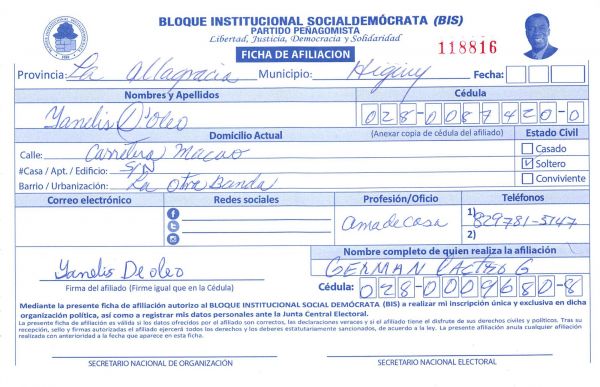 BLOQUE INSTITUCIONAL SOCIALDEMÓCRATA (BIS)
PARTIDO PEÑAGOMISTA
Libertad, Justicia, Democracia y Solidaridad
FICHA DE AFILIACION
118816
Provincia: La Altagracia Municipio: Higüey Fecha:
Nombres y Apellidos Cédula
Yanelis D'Oleo 028-0087420-0
Domicilio Actual (Anexar copia de cédula del afiliado) Estado Civil
Calle: Carretera Macao Casado
#Casa / Apt. / Edificio: S/N Soltero
Barrio / Urbanización: La Otra Banda Conviviente
Correo electrónico Redes sociales Profesión/Oficio Teléfonos
ama de casa 1) 829781-5147
2)
Nombre completo de quien realiza la afiliación
Yanelis De oleo GERMAN CASTRO G
Firma del afiliado (Firme igual que en la Cédula) Cédula: 028-0009680-8
Mediante la presente ficha de afiliación autorizo al BLOQUE INSTITUCIONAL SOCIAL DEMÓCRATA (BIS) a realizar mi inscripción única y exclusiva en dicha
organización política, así como a registrar mis datos personales ante la Junta Central Electoral.
La presente ficha de afiliación es válida si los datos ofrecidos por el afiliado son correctos, las declaraciones veraces y si el afiliado tiene el disfrute de sus derechos civiles y políticos. Tras su
recepción, sello y firmas autorizadas el afiliado ejercerá todos los derechos y los deberes estatutariamente sancionados, de acuerdo a la ley. La presente afiliación anula cualquier afiliación
realizada con anterioridad a la fecha que aparece en esta ficha.
SECRETARIO NACIONAL DE ORGANIZACIÓN SECRETARIO NACIONAL ELECTORAL